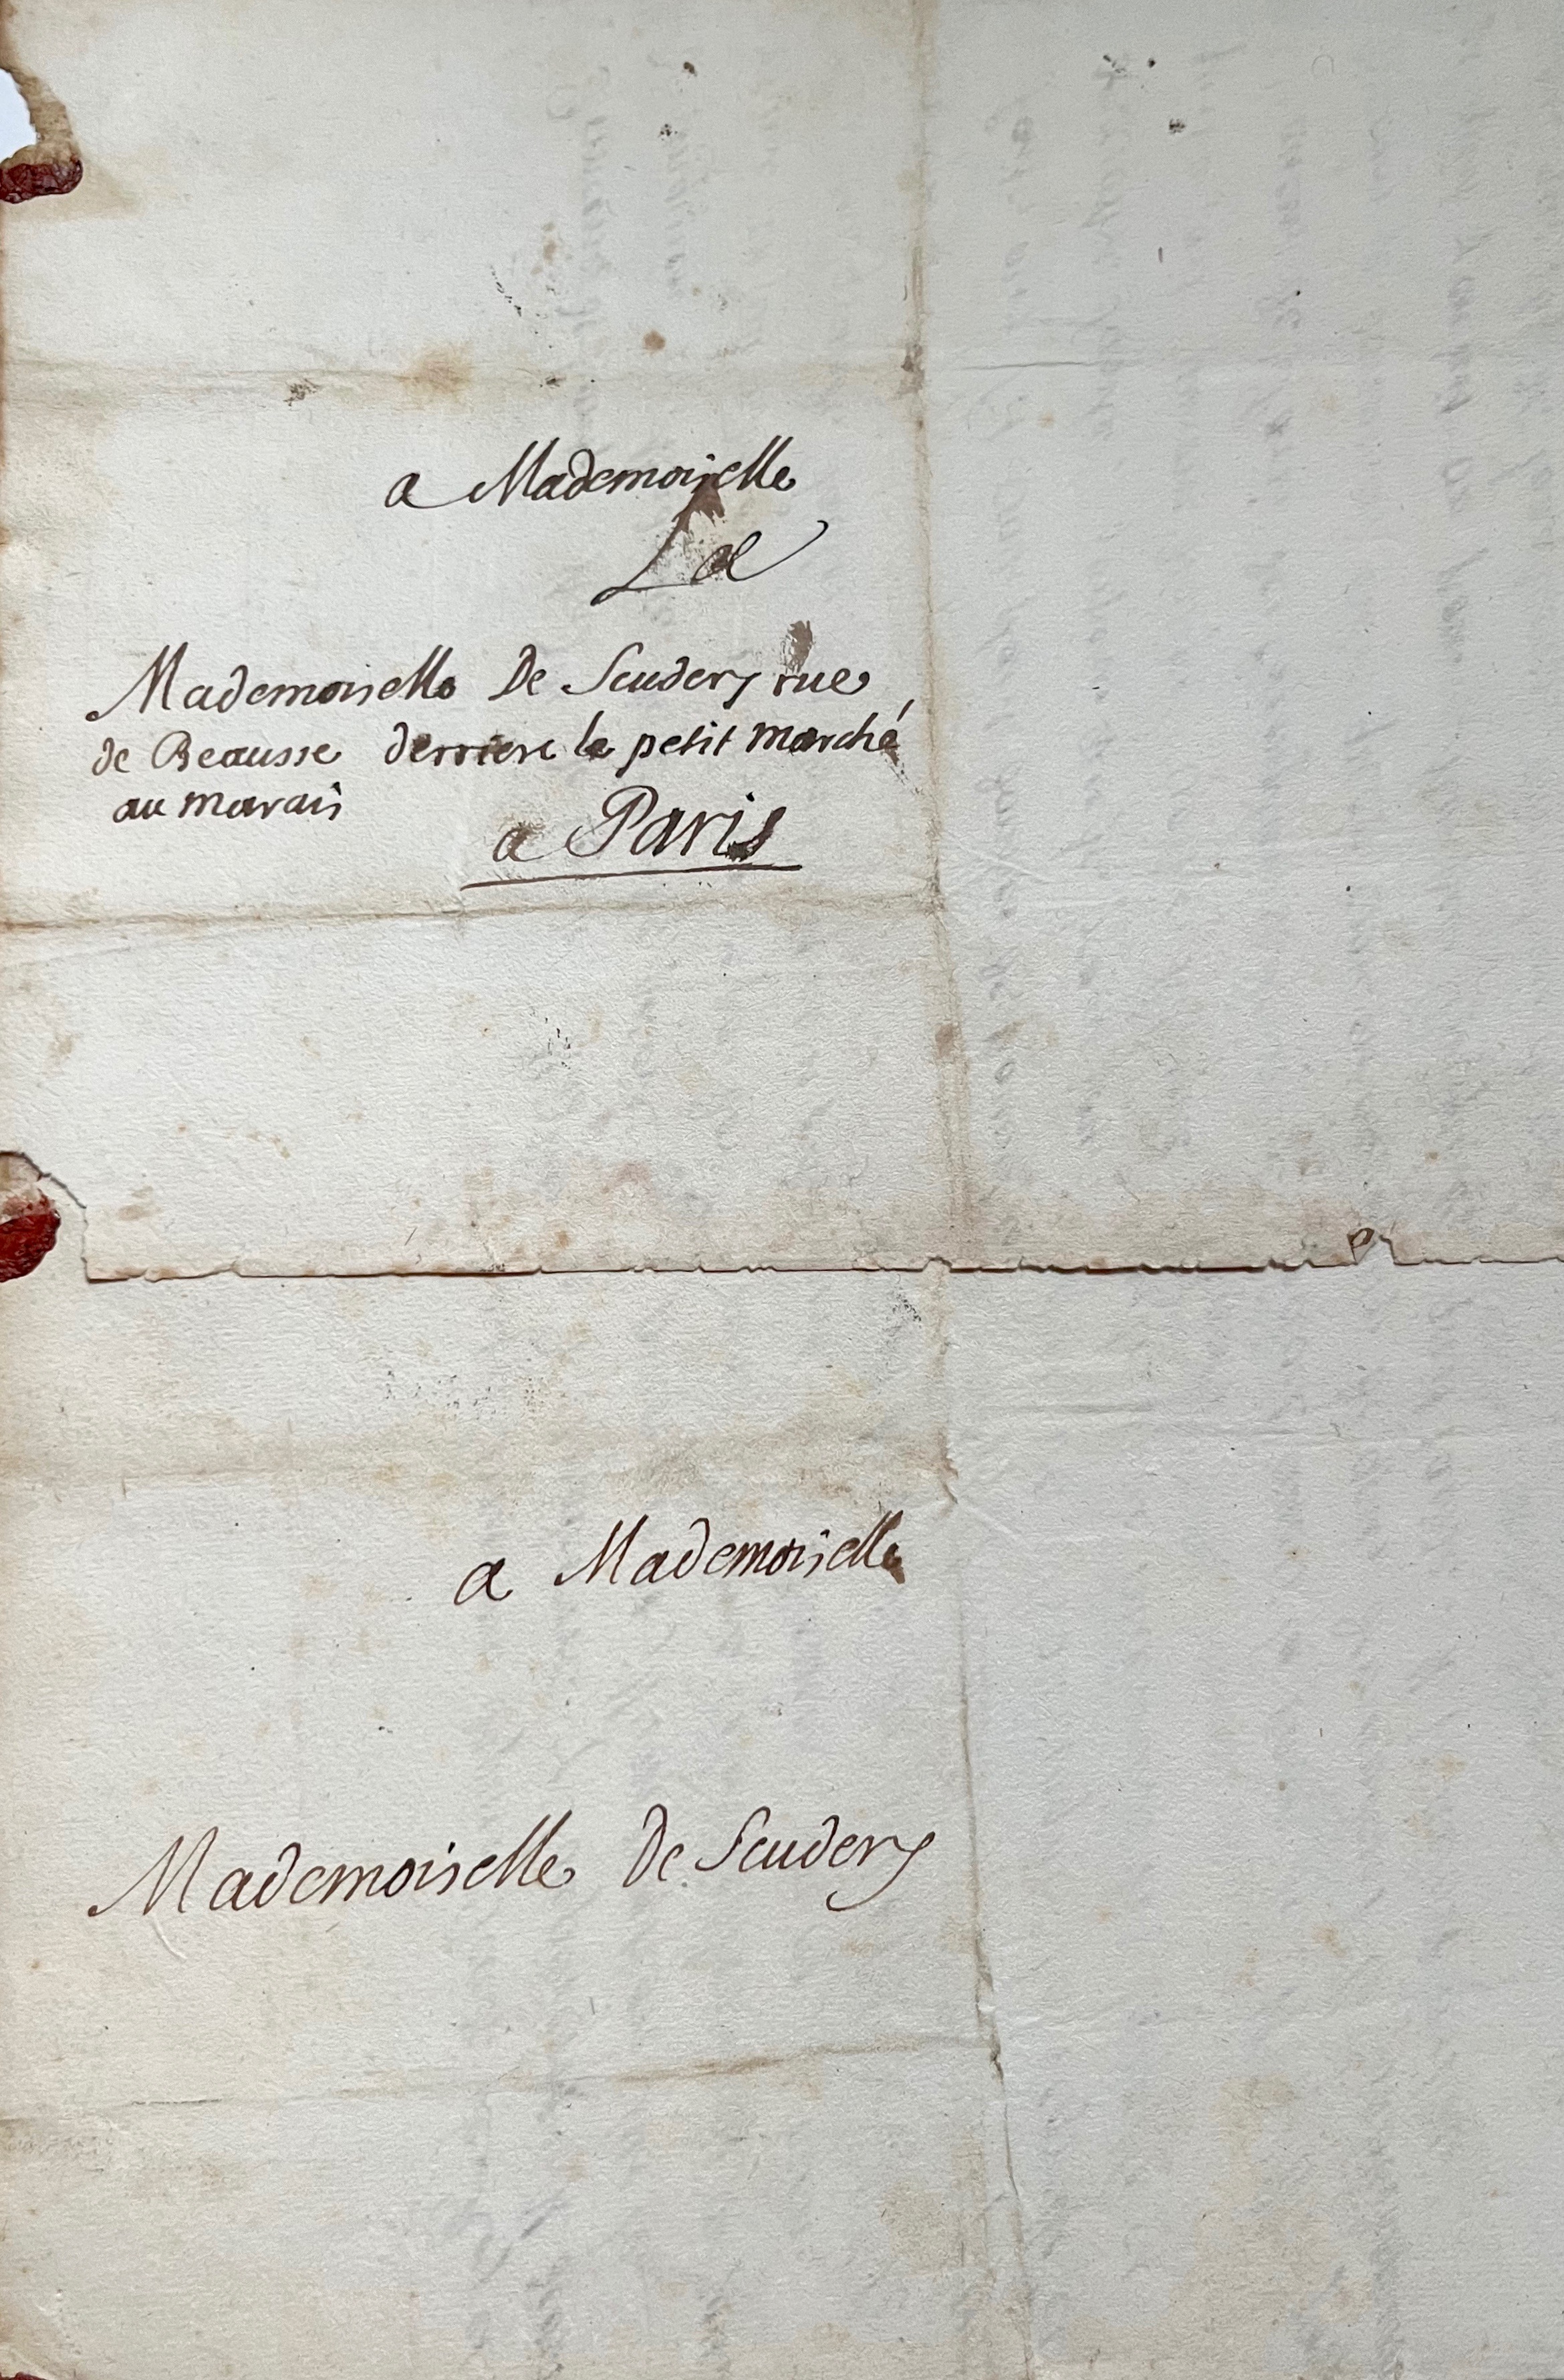 a Mademoiselle
La
Mademoiselle De Scudery rue
de Beausse derriere le petit marché
au marais
a Paris
a Mademoiselle
Mademoiselle De Scudery